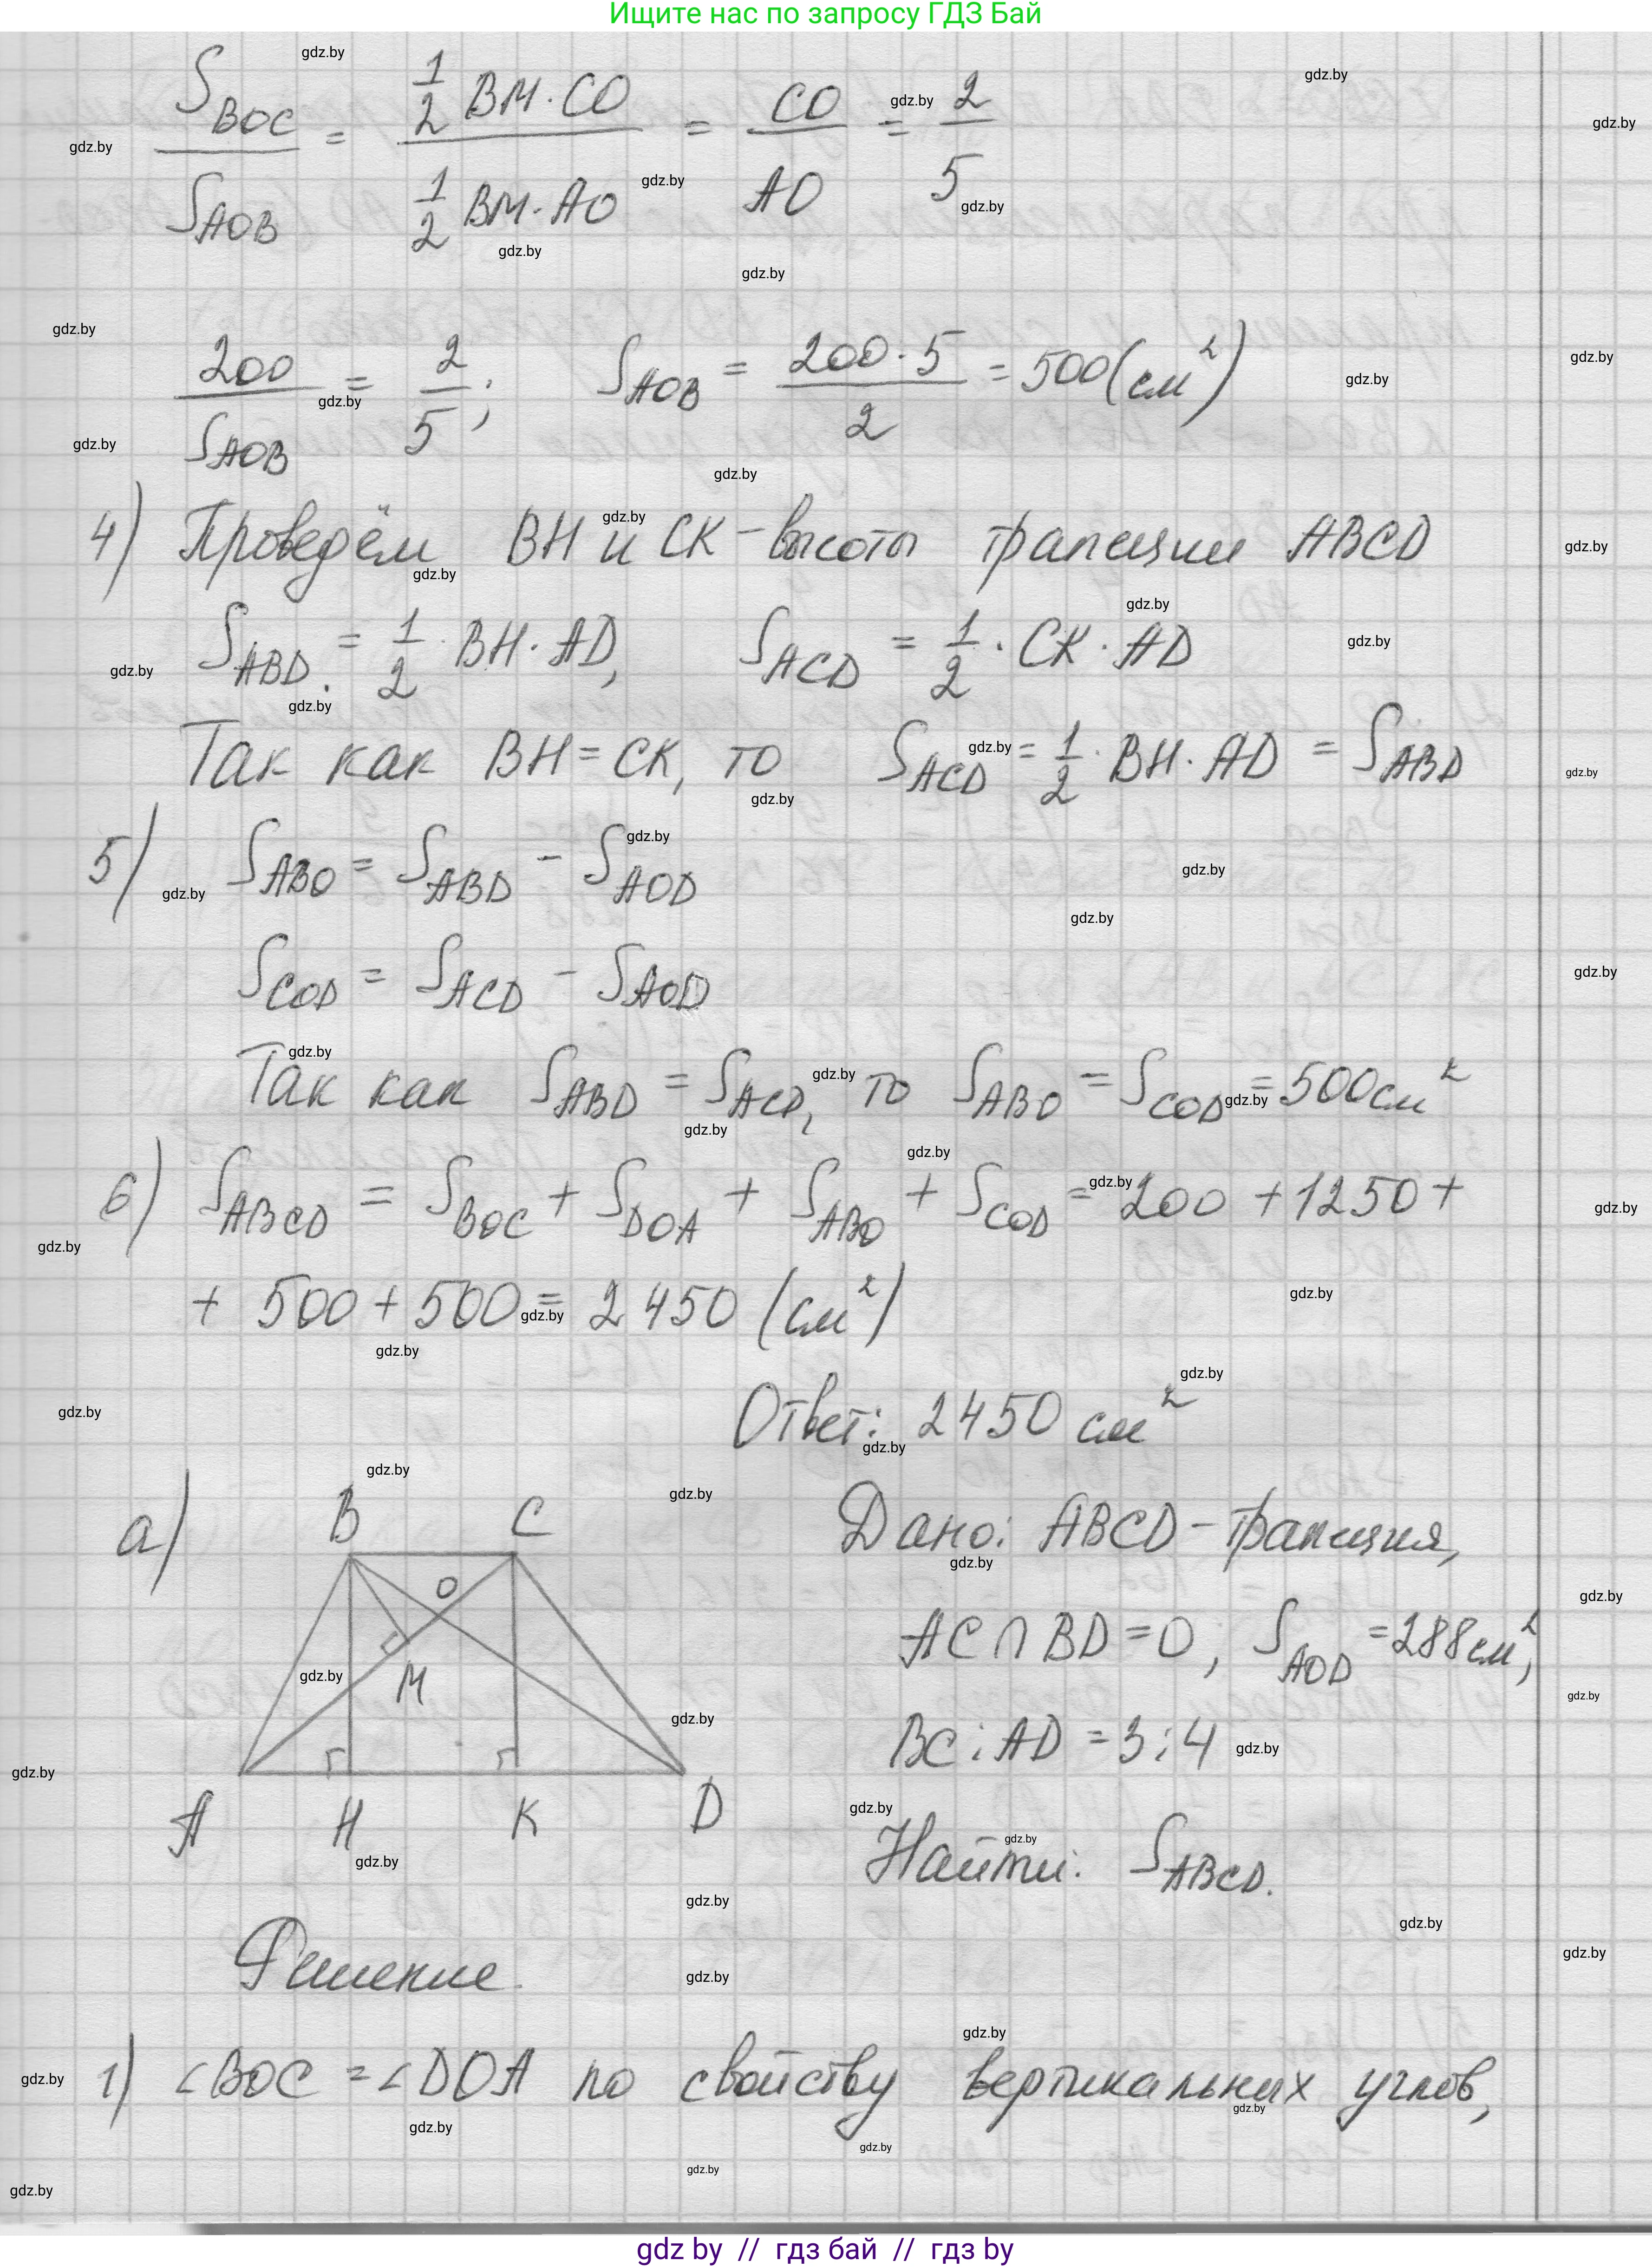 Ищите нас по запросу ГДЗ Бай
S_BOC / S_AOB = (1/2 BM · CO) / (1/2 BM · AO) = CO / AO = 2/5
200 / S_AOB = 2/5; S_AOB = (200 · 5) / 2 = 500 (см²)
4) Проведём BH и CK – высоты трапеции ABCD
S_ABD = 1/2 · BH · AD, S_ACD = 1/2 · CK · AD
Так как BH = CK, то S_ACD = 1/2 · BH · AD = S_ABD
5) S_ABO = S_ABD − S_AOD
S_COD = S_ACD − S_AOD
Так как S_ABD = S_ACD, то S_ABO = S_COD = 500 см²
6) S_ABCD = S_BOC + S_DOA + S_ABO + S_COD = 200 + 1250 +
+ 500 + 500 = 2450 (см²)
Ответ: 2450 см²
а) B C
O
M
A H K D
Дано: ABCD – трапеция,
AC ∩ BD = O, S_AOD = 288 см²,
BC : AD = 3 : 4
Найти: S_ABCD.
Решение.
1) ∠BOC = ∠DOA по свойству вертикальных углов,
gdz.by
gdz by // гдз бай // гдз by